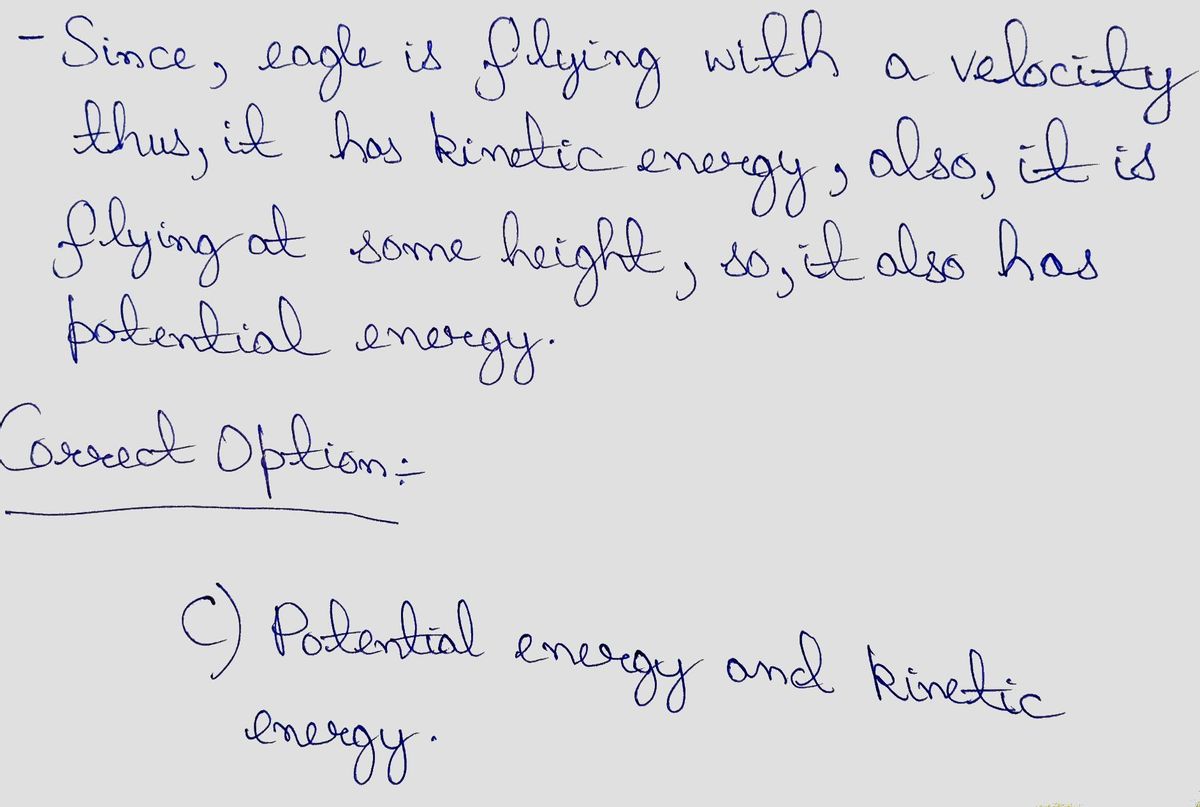 - Since, eagle is flying with a velocity
thus, it has kinetic energy, also, it is
flying at some height, so, it also has
potential energy.
Correct Option:-
C) Potential energy and kinetic
energy.